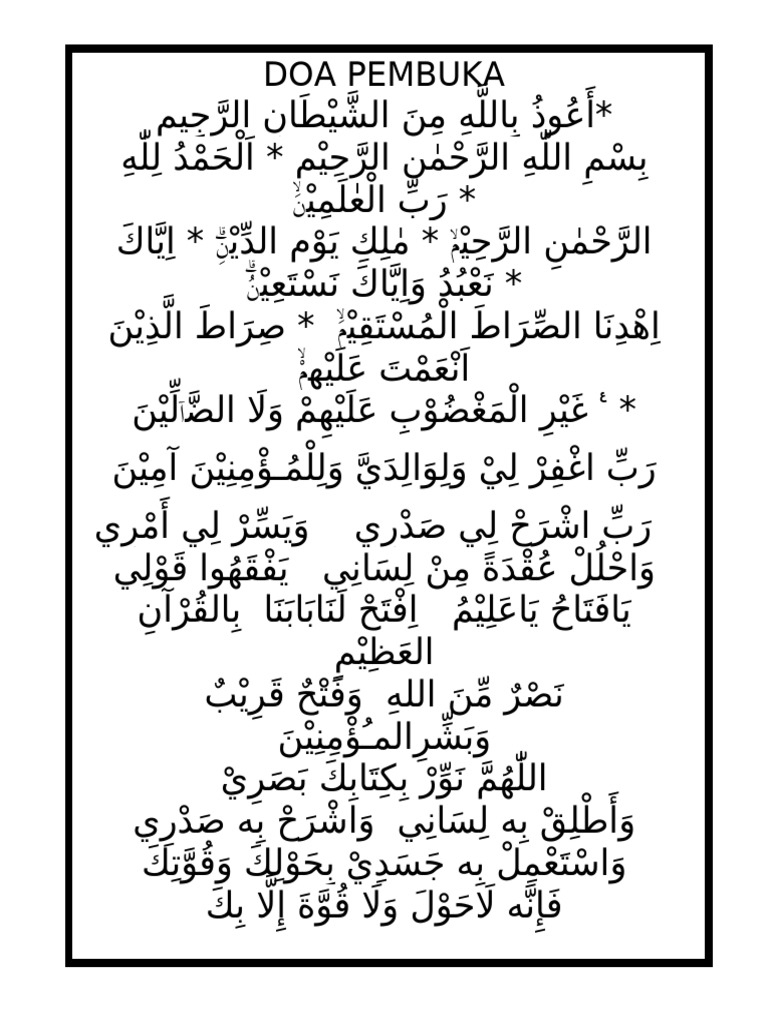 DOA PEMBUKA
*أَعُوذُ بِاللَّهِ مِنَ الشَّيْطَانِ الرَّجِيمِ
بِسْمِ اللّٰهِ الرَّحْمٰنِ الرَّحِيْمِ * اَلْحَمْدُ لِلّٰهِ
رَبِّ الْعٰلَمِيْنَۙ *
الرَّحْمٰنِ الرَّحِيْمِۙ * مٰلِكِ يَوْمِ الدِّيْنِۗ * اِيَّاكَ
نَعْبُدُ وَاِيَّاكَ نَسْتَعِيْنُۗ *
اِهْدِنَا الصِّرَاطَ الْمُسْتَقِيْمَۙ * صِرَاطَ الَّذِيْنَ
اَنْعَمْتَ عَلَيْهِمْۙ
* ࣖ غَيْرِ الْمَغْضُوْبِ عَلَيْهِمْ وَلَا الضَّاۤلِّيْنَ
رَبِّ اغْفِرْ لِيْ وَلِوَالِدَيَّ وَلِلْمُـؤْمِنِيْنَ آمِيْنَ
رَبِّ اشْرَحْ لِي صَدْرِي وَيَسِّرْ لِي أَمْرِي
وَاحْلُلْ عُقْدَةً مِنْ لِسَانِي يَفْقَهُوا قَوْلِي
يَافَتَاحُ يَاعَلِيْمُ اِفْتَحْ لَنَابَابَنَا بِالقُرْآنِ
العَظِيْمِ
نَصْرٌ مِّنَ اللهِ وَفَتْحٌ قَرِيْبٌ
وَبَشِّرِالمـُؤْمِنِيْنَ
اللّٰهُمَّ نَوِّرْ بِكِتَابِكَ بَصَرِيْ
وَأَطْلِقْ بِه لِسَانِي وَاشْرَحْ بِه صَدْرِي
وَاسْتَعْمِلْ بِه جَسَدِيْ بِحَوْلِكَ وَقُوَّتِكَ
فَإِنَّه لَاحَوْلَ وَلَا قُوَّةَ إِلَّا بِكَ